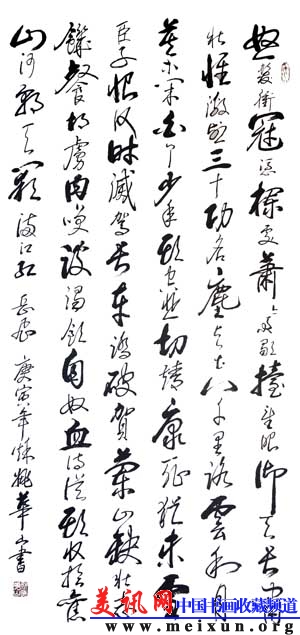 怒髮衝冠憑欄處蕭々雨歇擡望眼仰天長嘯
壮懷激烈三十功名塵与土八千里路雲和月
莫等闲白了少年头空悲切靖康耻犹未雪
臣子恨何时滅驾长车踏破賀蘭山缺壮志
饑餐胡虜肉笑談渴飲匈奴血待從头收拾舊
山河朝天闕 滿江紅 岳飛 庚寅年秌姚華山書
美讯网 中国书画收藏频道
www.meixun.org